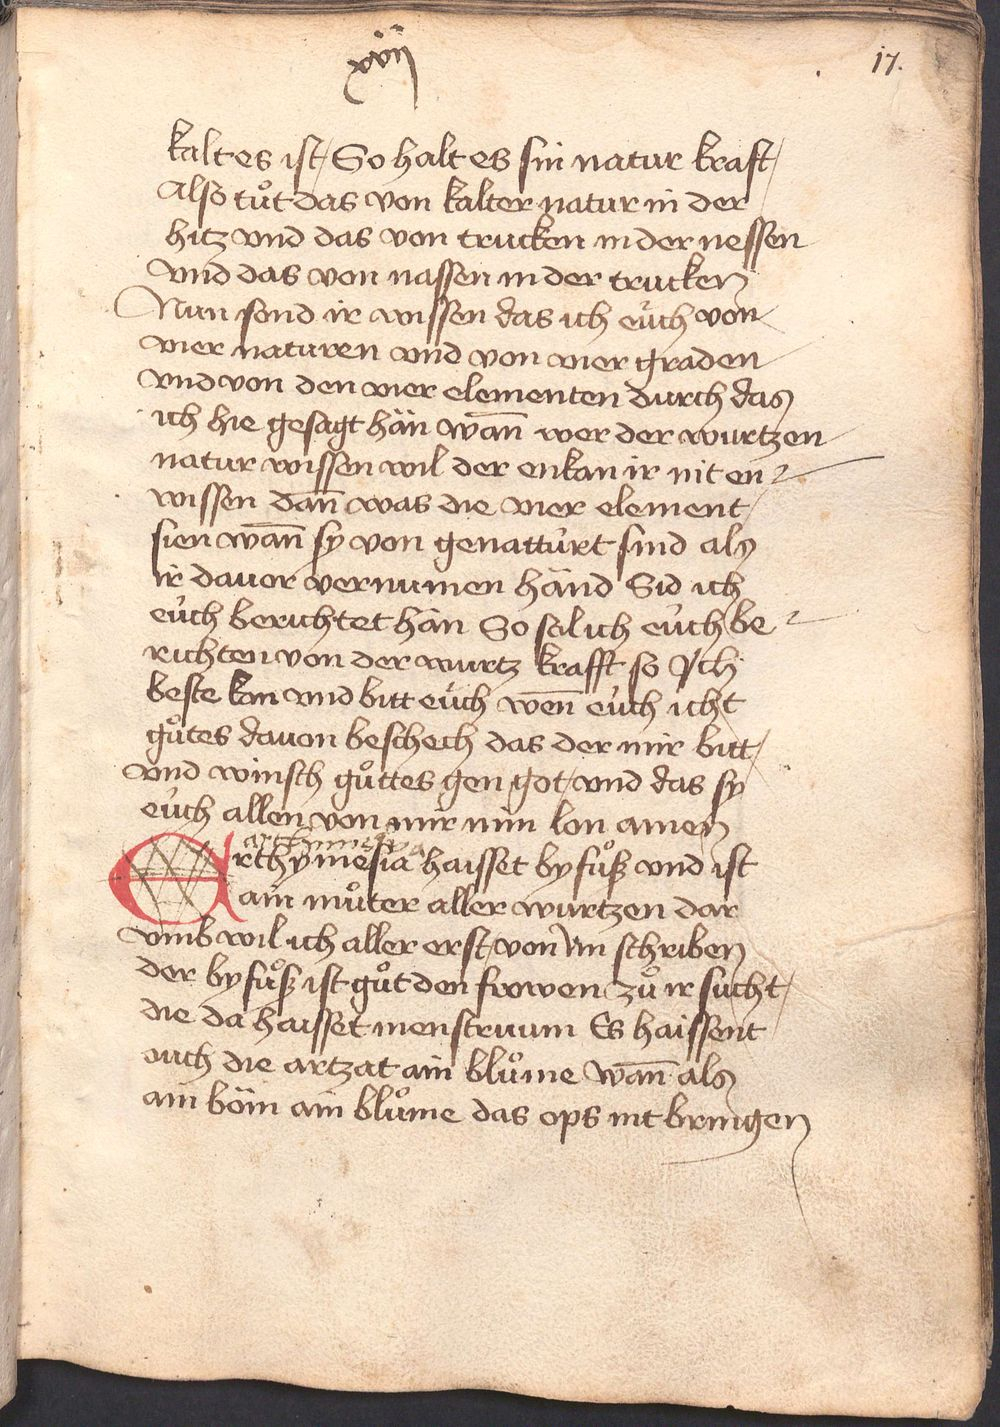 xvij
17.
kalt es ist / So halt es sin natur kraft /
Also tuͦt das von kalter natur in der
hitz vnd das von trucken in der nessen
vnd das von nassen in der trucken
Nun sond ir wissen das ich eu̇ch von
vier naturen vnd von vier graden
vnd von den vier elementen durch das
ich hie gesagt hän wan̄ wer der wurtzen
natur wissen wil der enkan ir nit en
wissen dan̄ was die vier element
sien wan̄ sy von genattu̇rt sind als
ir dauor vernumen händ Sid ich
eu̇ch berichtet hän So sol ich eu̇ch be
richten von der wurtz krafft so Ich
beste kan vnd bitt eu̇ch wen̄ eu̇ch icht
guͦtes dauon beschech das der mir bitt /
vnd winsch guͦttes gen got / vnd das sy
eu̇ch allen von mir min lon amen
arthimesia
Erthymesia haisset byfuͦß vnd ist
ain muͦter aller wurtzen dar
vmb wil ich aller erst / von im schriben
der byfuͦß ist guͦt den frowen zuͦ ir sucht /
die da haisset menstruum Es haissent
ouch die artzat ain bluͦme wan̄ als
ain böm ain bluͦme das ops nit bringen